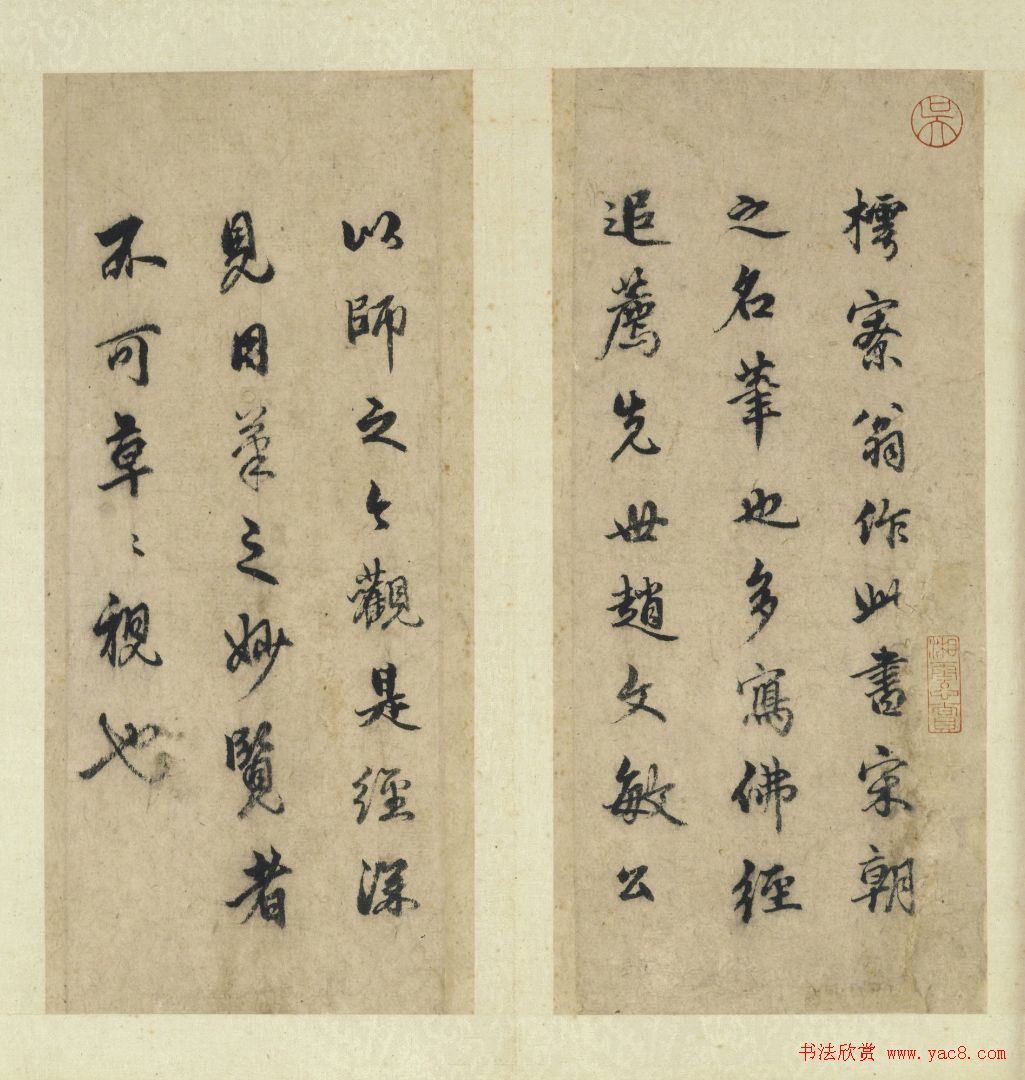 樗寮翁作此書宋朝
之名筆也多寫佛經
追薦先世趙文敏公
以師之今觀是經深
見用筆之妙覽者
不可草〻視也
吳
書法欣赏 www.yac8.com